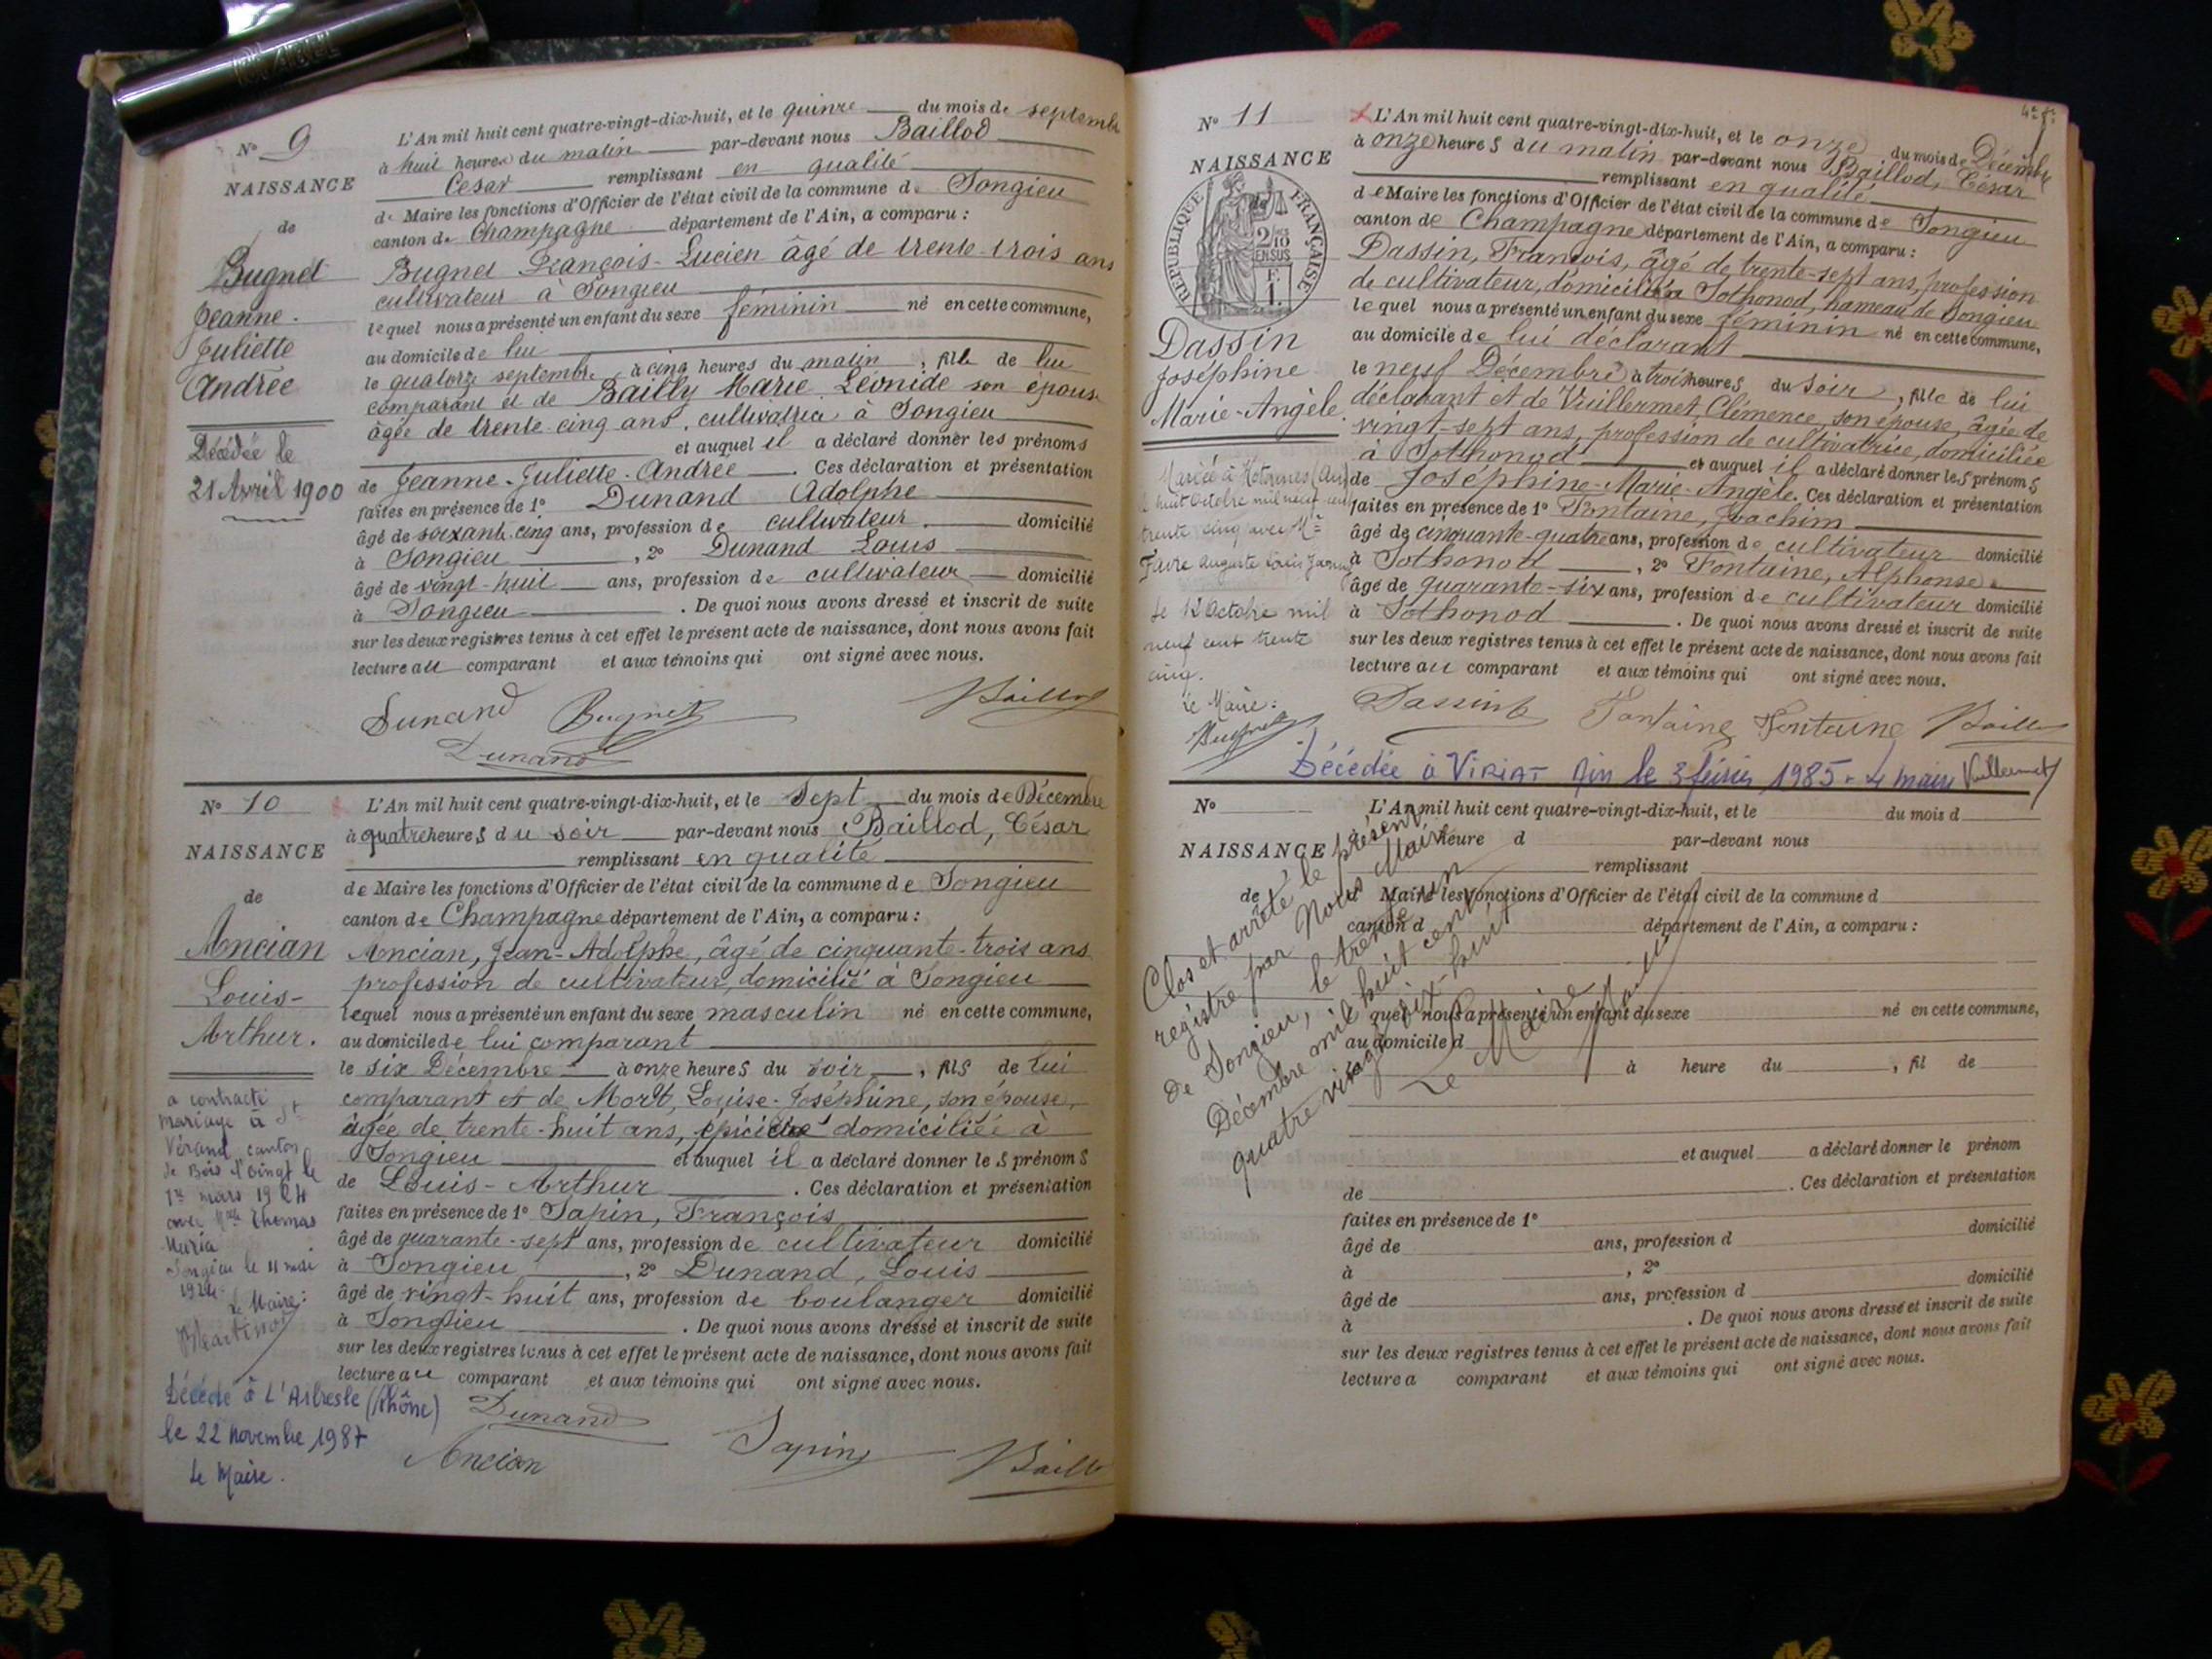 N° 9
NAISSANCE
de
Bugnet
Jeanne.
Juliette
Andrée
Décédée le
21 Avril 1900
L'An mil huit cent quatre-vingt-dix-huit, et le quinze du mois de septembre
à huit heures du matin par-devant nous Baillod
César remplissant en qualité
de Maire les fonctions d'Officier de l'état civil de la commune de Songieu
canton de Champagne département de l'Ain, a comparu :
Bugnet François-Lucien âgé de trente-trois ans
cultivateur à Songieu
lequel nous a présenté un enfant du sexe féminin né en cette commune,
au domicile de lui
le quatorze septembre, à cinq heures du matin, fille de lui
comparant et de Bailly Marie Léonide son épouse
âgée de trente-cinq ans, cultivatrice à Songieu
et auquel il a déclaré donner les prénoms
de Jeanne-Juliette-Andrée. Ces déclaration et présentation
faites en présence de 1° Dunand Adolphe
âgé de soixante-cinq ans, profession de cultivateur domicilié
à Songieu, 2° Dunand Louis
âgé de vingt-huit ans, profession de cultivateur domicilié
à Songieu. De quoi nous avons dressé et inscrit de suite
sur les deux registres tenus à cet effet le présent acte de naissance, dont nous avons fait
lecture au comparant et aux témoins qui ont signé avec nous.
Dunand Bugnet Baillod
Dunand
N° 10
NAISSANCE
de
Ancian
Louis-
Arthur.
a contracté
mariage à St
Vérand, canton
de Bois d'Oingt le
1er mars 1924
avec Mlle Thomas
Maria
Songieu le 11 mai
1924.
Le Maire :
Décédé à L'Arbresle (Rhône)
le 22 novembre 1987
Le Maire.
L'An mil huit cent quatre-vingt-dix-huit, et le sept du mois de Décembre
à quatre heures du soir par-devant nous Baillod, César
remplissant en qualité
de Maire les fonctions d'Officier de l'état civil de la commune de Songieu
canton de Champagne département de l'Ain, a comparu :
Ancian, Jean-Adolphe, âgé de cinquante-trois ans
profession de cultivateur, domicilié à Songieu
lequel nous a présenté un enfant du sexe masculin né en cette commune,
au domicile de lui comparant
le six Décembre à onze heures du soir, fils de lui
comparant et de Louise-Joséphine, son épouse,
âgée de trente-huit ans, domiciliée à
Songieu et auquel il a déclaré donner les prénoms
de Louis-Arthur. Ces déclaration et présentation
faites en présence de 1° Sapin, François
âgé de quarante-sept ans, profession de cultivateur domicilié
à Songieu, 2° Dunand, Louis
âgé de vingt-huit ans, profession de boulanger domicilié
à Songieu. De quoi nous avons dressé et inscrit de suite
sur les deux registres tenus à cet effet le présent acte de naissance, dont nous avons fait
lecture au comparant et aux témoins qui ont signé avec nous.
Dunand
Ancian Sapin Baillod
N° 11
NAISSANCE
de
REPUBLIQUE FRANÇAISE
2/10
EN SUS
F.
1.
Dassin
Joséphine
Marie-Angèle.
Mariée à Hotonnes (Ain)
le huit Octobre mil neuf cent
trente cinq avec Mr
Favre Auguste Louis
le 12 Octobre mil
neuf cent trente
cinq.
Le Maire :
L'An mil huit cent quatre-vingt-dix-huit, et le onze du mois de Décembre
à onze heures du matin par-devant nous Baillod, César
remplissant en qualité
de Maire les fonctions d'Officier de l'état civil de la commune de Songieu
canton de Champagne département de l'Ain, a comparu :
Dassin, François, âgé de trente-sept ans, profession
de cultivateur, domicilié à Sothonod, hameau de Songieu
lequel nous a présenté un enfant du sexe féminin né en cette commune,
au domicile de lui déclarant
le neuf Décembre à trois heures du soir, fille de lui
déclarant et de Vuillermet, Clémence, son épouse, âgée de
vingt-sept ans, profession de cultivatrice, domiciliée
à Sothonod et auquel il a déclaré donner les prénoms
de Joséphine-Marie-Angèle. Ces déclaration et présentation
faites en présence de 1° Fontaine, Joachim
âgé de cinquante-quatre ans, profession de cultivateur domicilié
à Sothonod, 2° Fontaine, Alphonse
âgé de quarante-six ans, profession de cultivateur domicilié
à Sothonod. De quoi nous avons dressé et inscrit de suite
sur les deux registres tenus à cet effet le présent acte de naissance, dont nous avons fait
lecture au comparant et aux témoins qui ont signé avec nous.
Dassin Fontaine Fontaine Baillod
Décédée à Viriat Ain le 3 février 1985 - Le maire Vuillermet
N°
NAISSANCE
de
Clos et arrêté le présent
registre par Nous Maire
de Songieu, le trente un
Décembre mil huit cent
quatre vingt dix-huit
Le Maire
L'An mil huit cent quatre-vingt-dix-huit, et le du mois d
à heure d par-devant nous
remplissant
d Maire les fonctions d'Officier de l'état civil de la commune d
canton d département de l'Ain, a comparu :
quel nous a présenté un enfant du sexe né en cette commune,
au domicile d
à heure du , fil de
et auquel a déclaré donner le prénom
de . Ces déclaration et présentation
faites en présence de 1°
âgé de ans, profession d domicilié
à , 2°
âgé de ans, profession d domicilié
à . De quoi nous avons dressé et inscrit de suite
sur les deux registres tenus à cet effet le présent acte de naissance, dont nous avons fait
lecture a comparant et aux témoins qui ont signé avec nous.